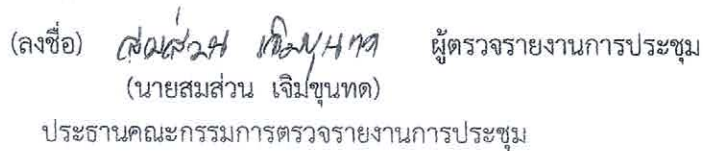 (ลงชื่อ) สมส่วน เจิมขุนทด ผู้ตรวจรายงานการประชุม
(นายสมส่วน เจิมขุนทด)
ประธานคณะกรรมการตรวจรายงานการประชุม